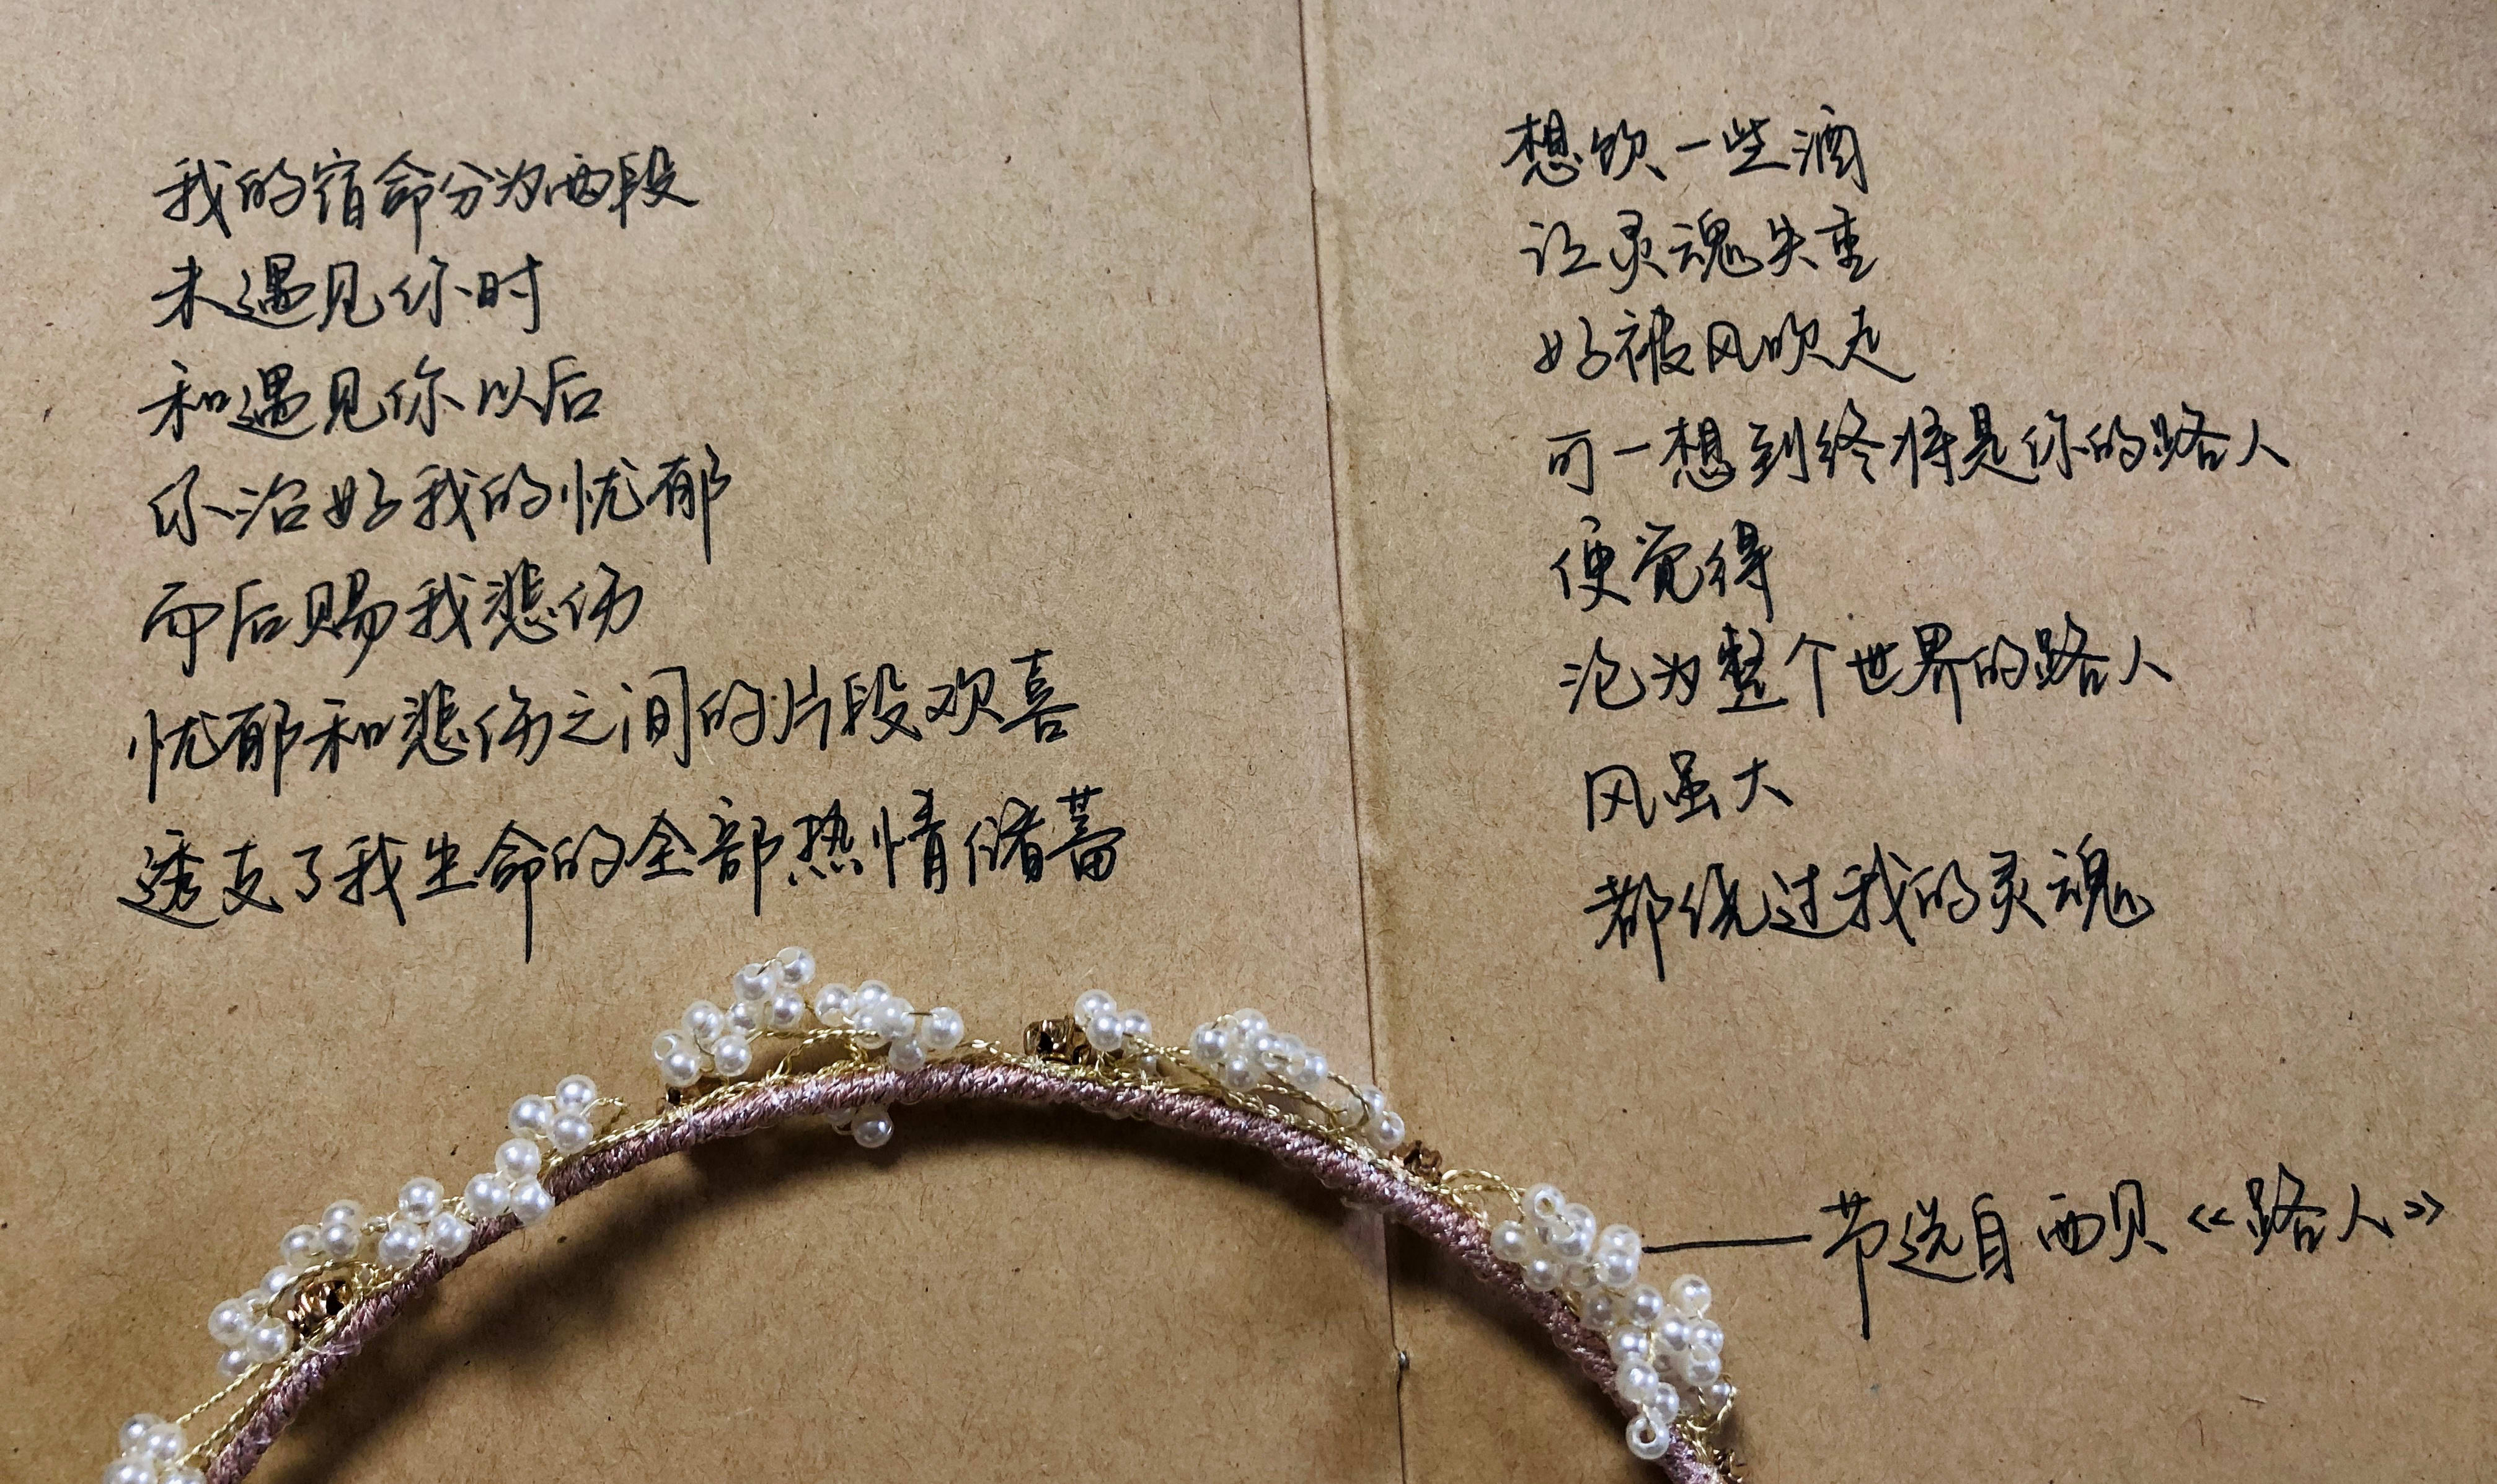 我的宿命分为两段
未遇见你时
和遇见你以后
你治好我的忧郁
而后赐我悲伤
忧郁和悲伤之间的片段欢喜
透支了我生命的全部热情储蓄
想饮一些酒
让灵魂失重
好被风吹走
可一想到终将是你的路人
便觉得
沦为整个世界的路人
风虽大
都绕过我的灵魂
——节选自西贝《路人》